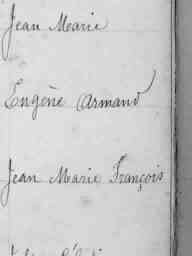 Jean Marie
Eugène Armand
Jean Marie François